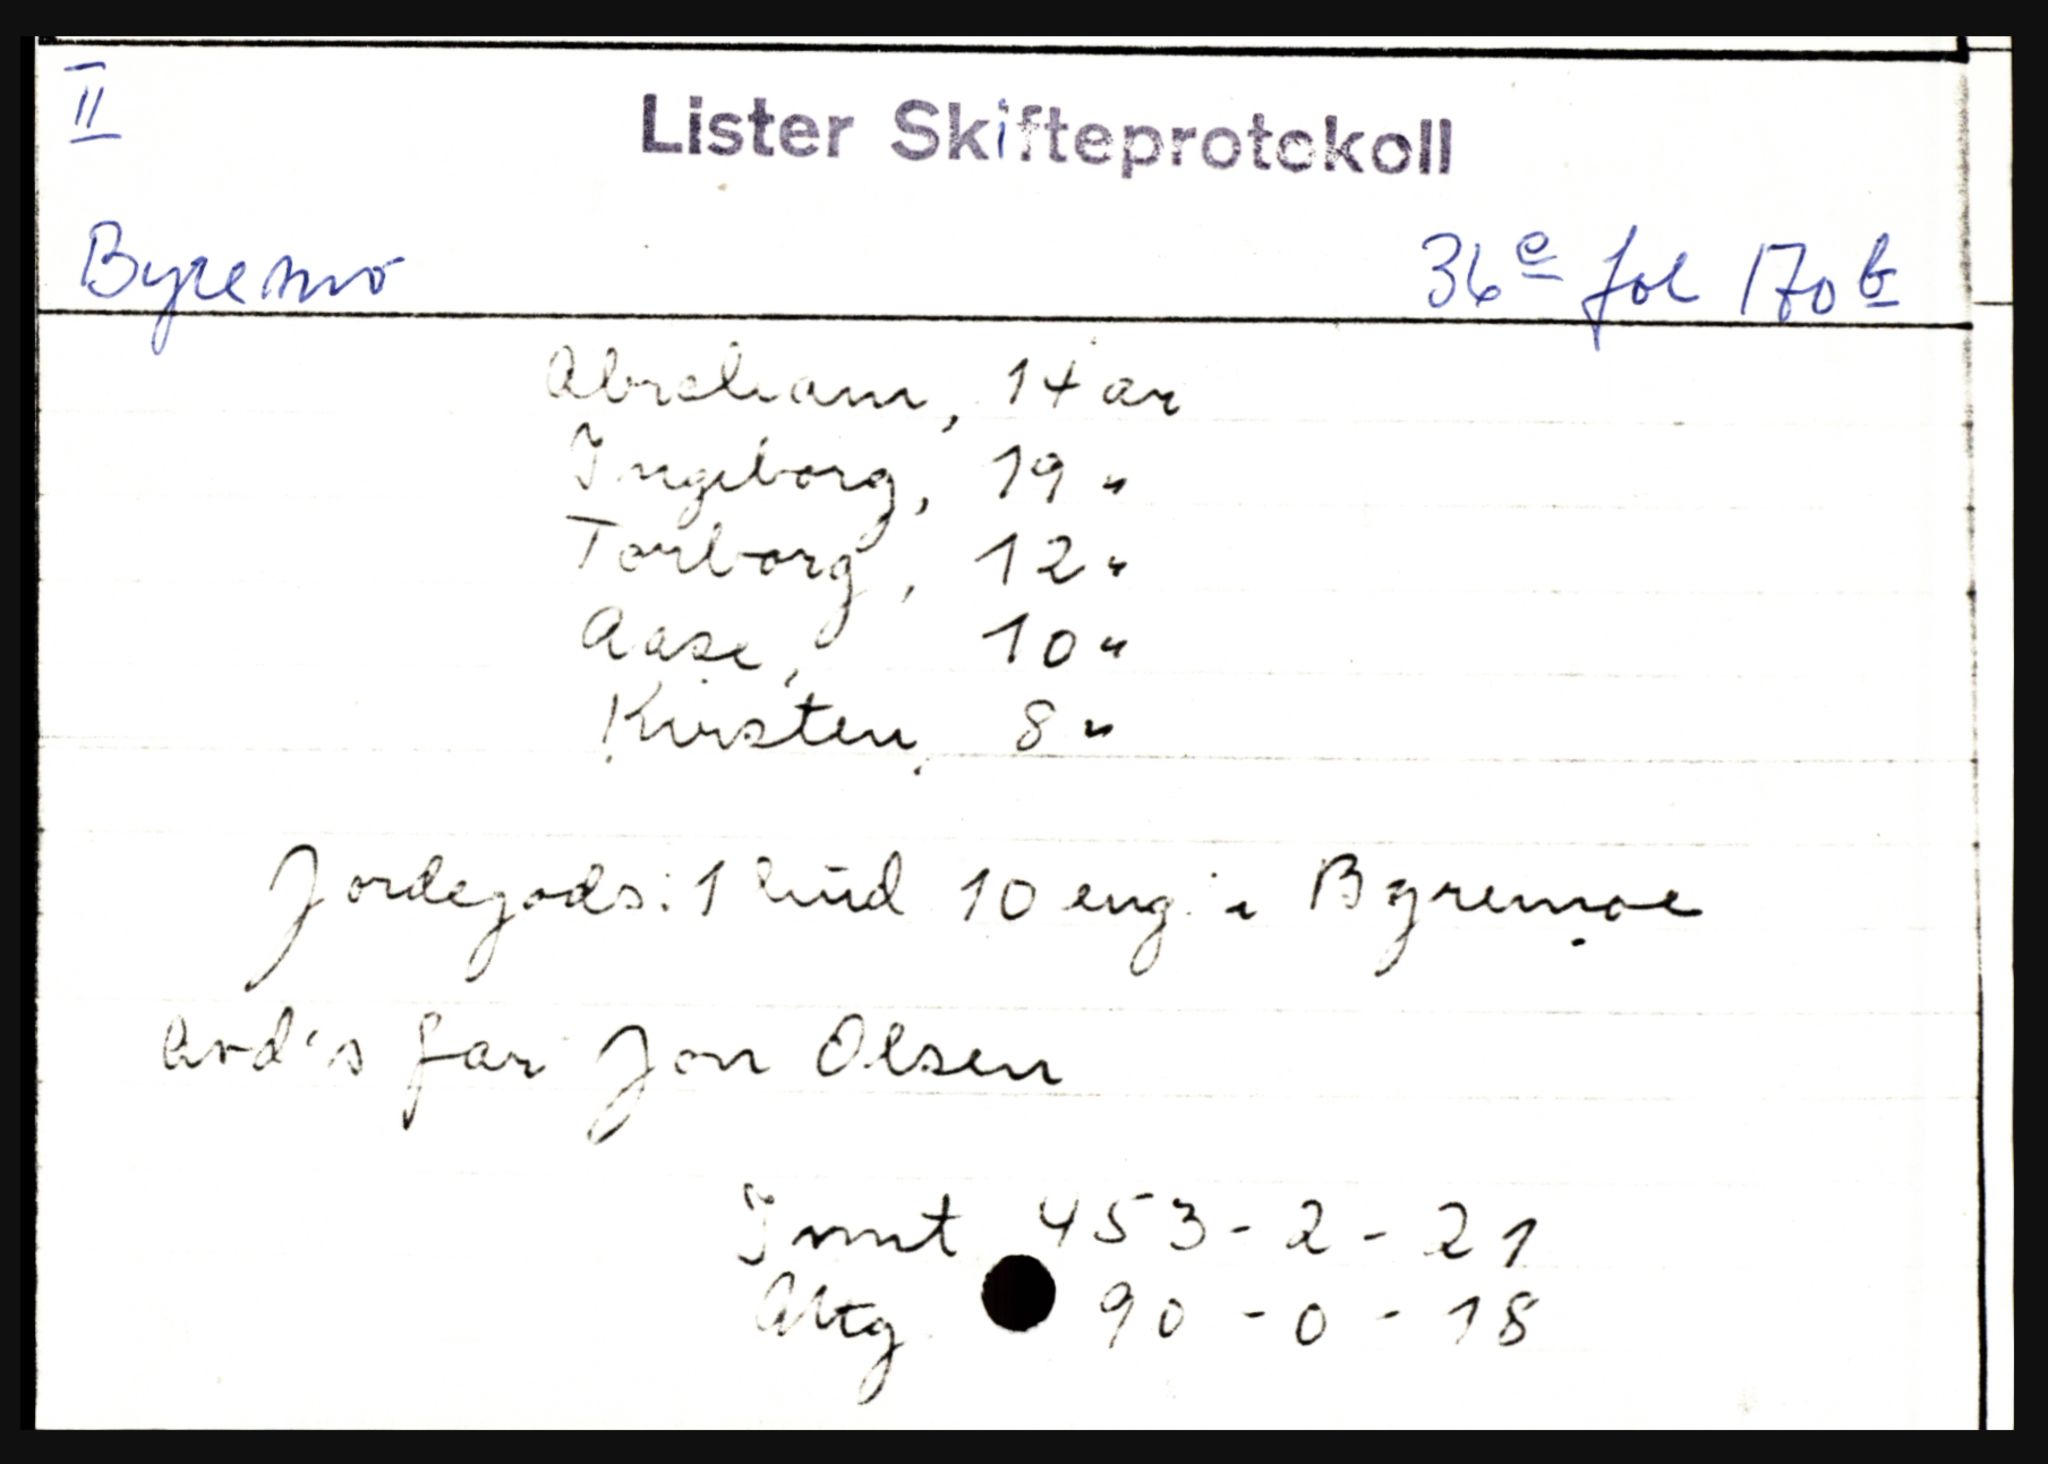 II
Lister Skifteprotokoll
Byremo 36e fol 170b
Abraham, 14 år
Ingeborg, 19 "
Torborg, 12 "
Aase, 10 "
Kirsten, 8 "
Jordegods: 1 hud 10 eng i Byremoe
Avd's far Jon Olsen
Innt 453-2-21
Utg 90-0-18